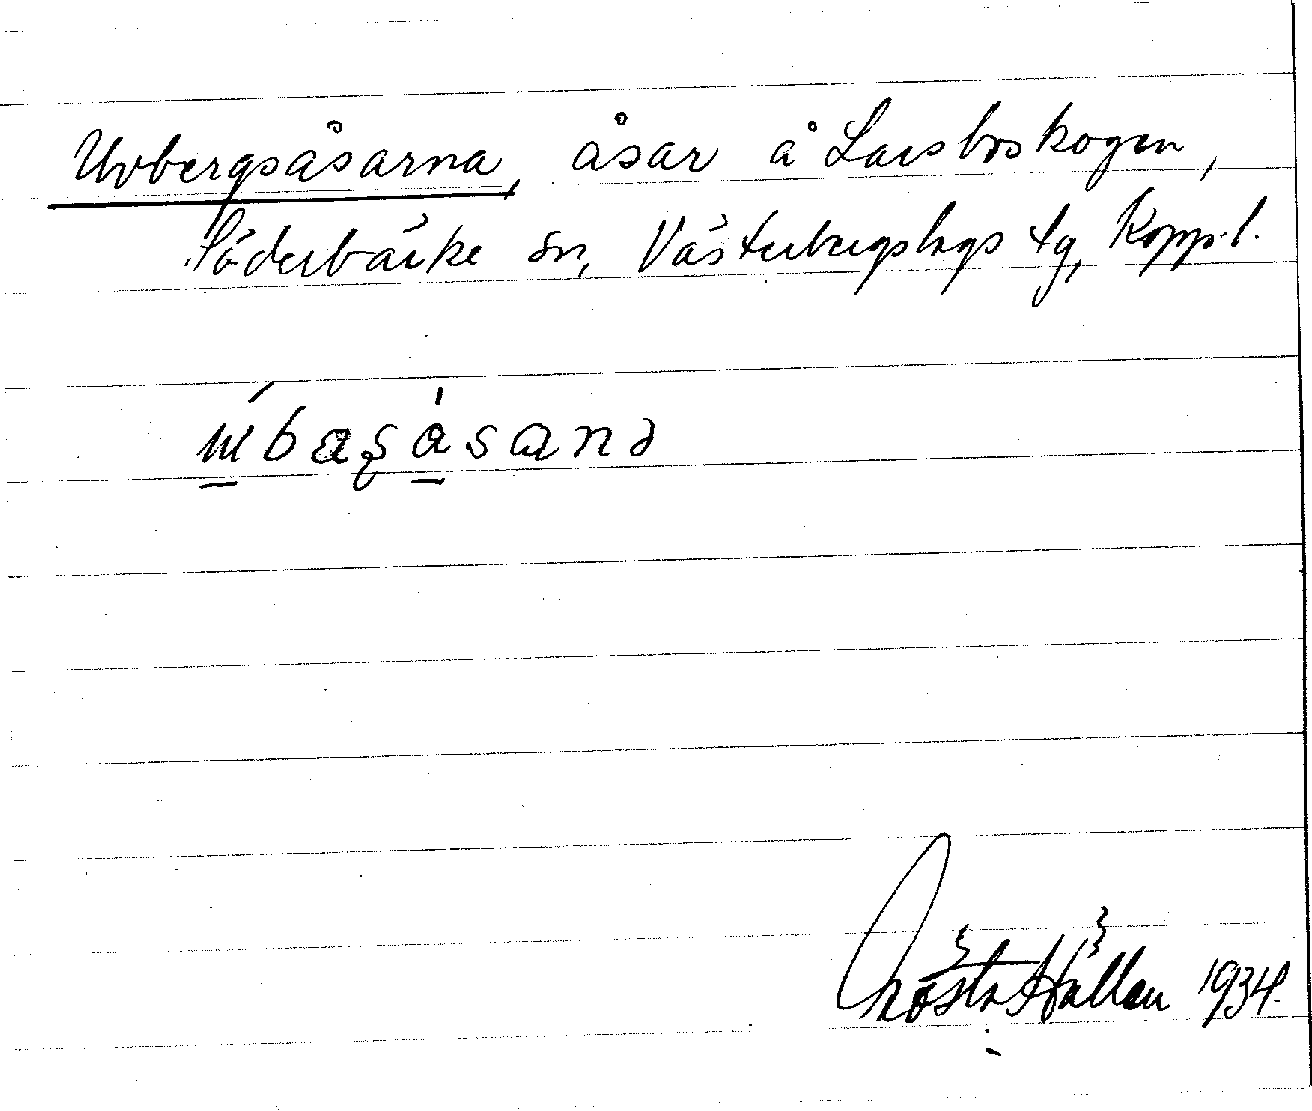 Uvbergsåsarna, åsar å Larsboskogen,
Söderbärke sn, Västerbergslags tg, Kopp.l.
Gösta Hållen 1934.